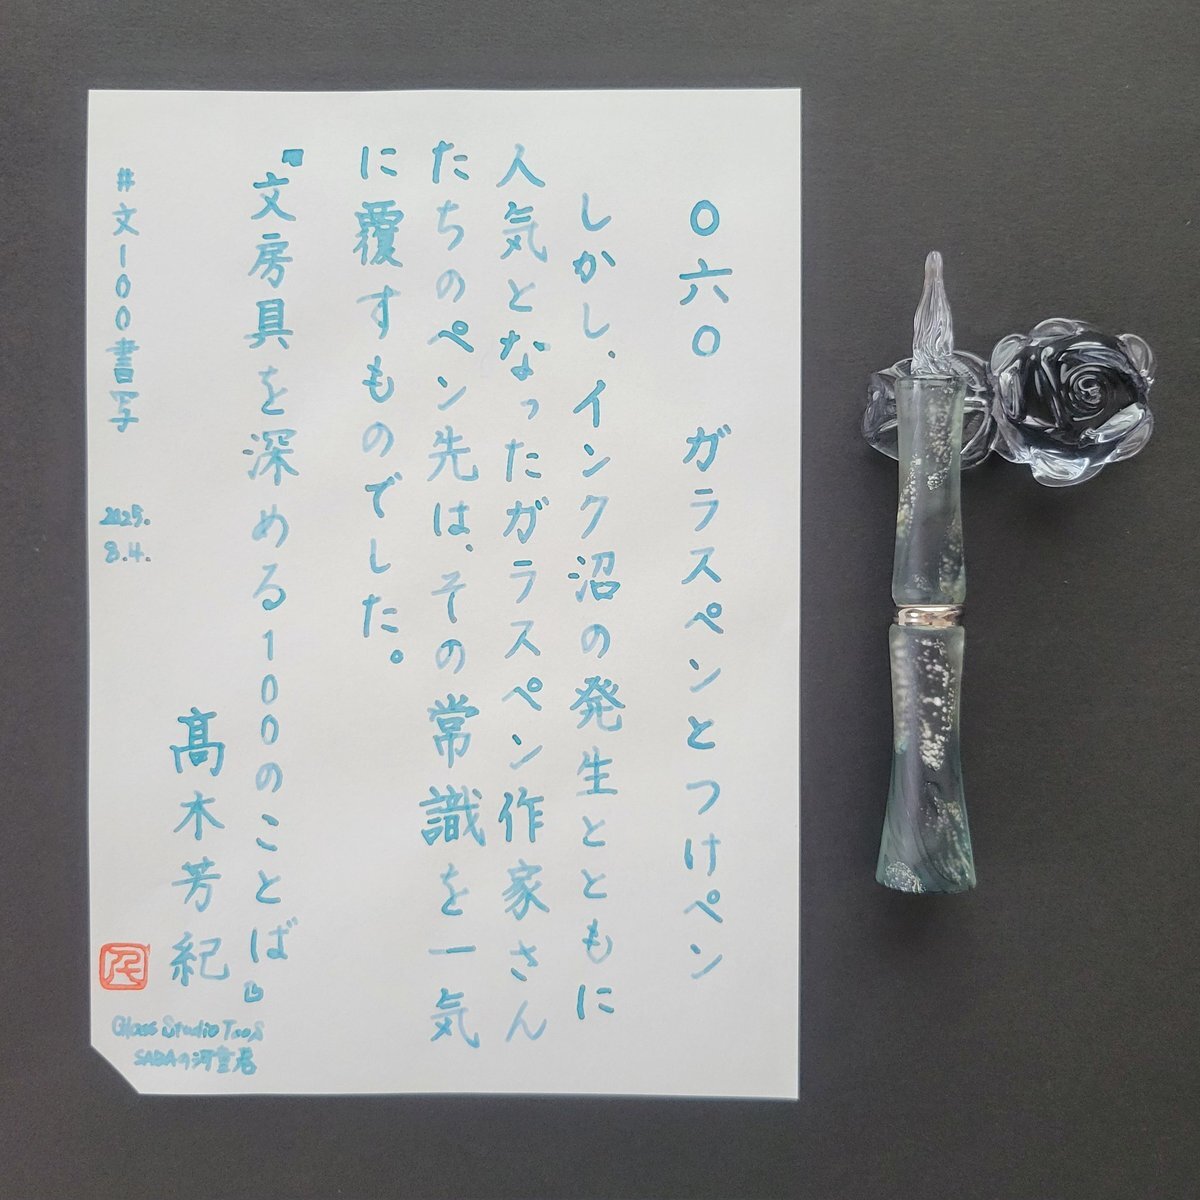 〇六〇　ガラスペンとつけペン
しかし、インク沼の発生とともに
人気となったガラスペン作家さん
たちのペン先は、その常識を一気
に覆すものでした。
『文房具を深める100のことば』
髙木芳紀
#文100書写
2025.
8.4.
Glass Studio TooS
SABAの河童君